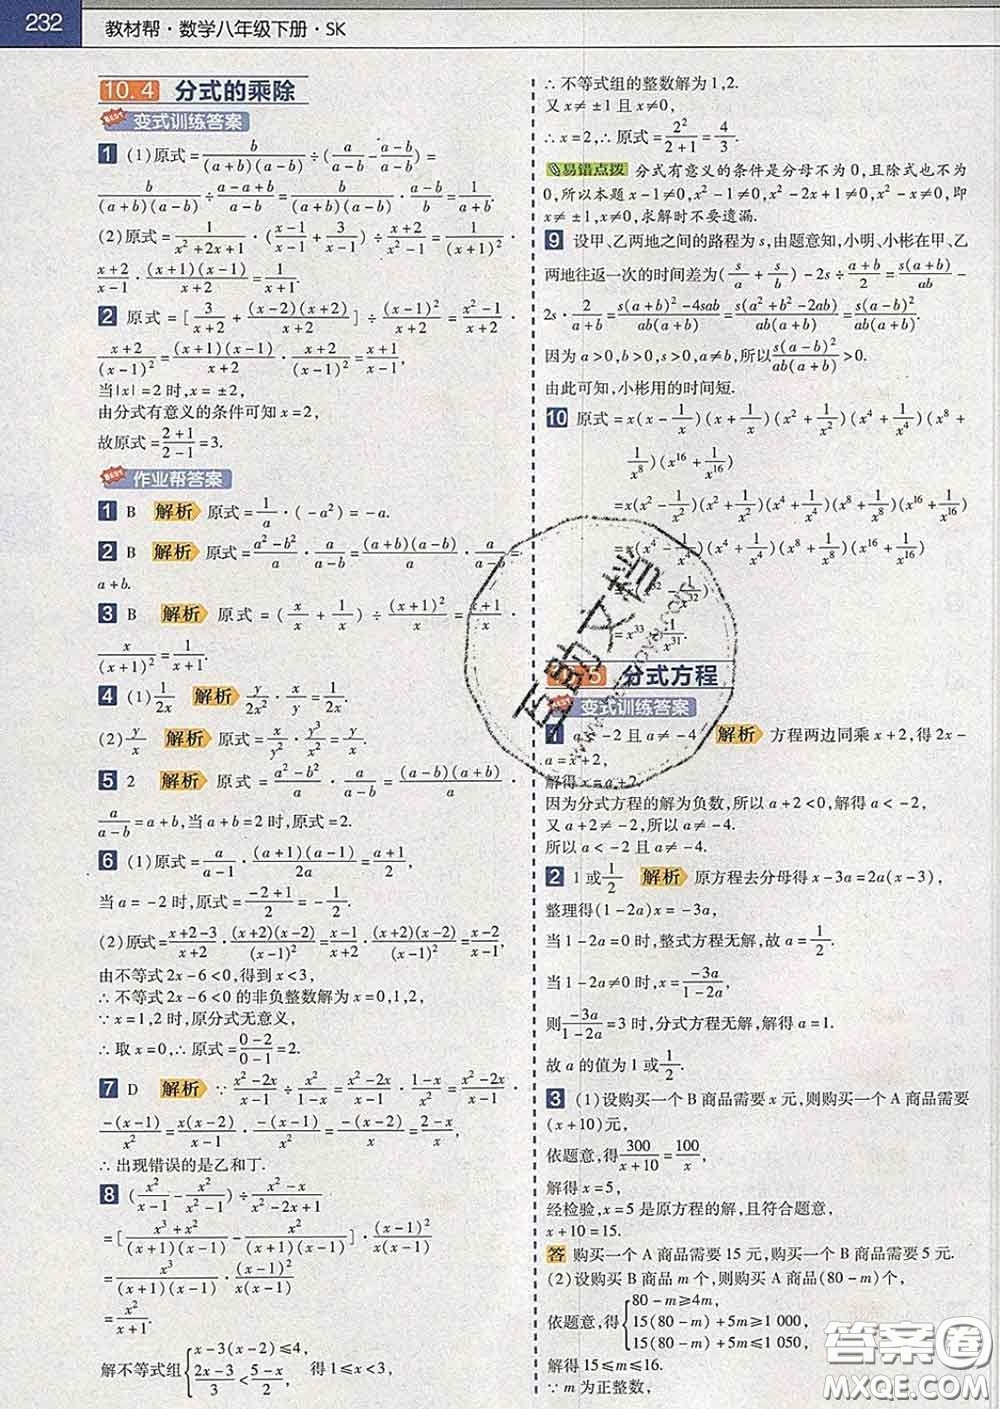 232 教材帮·数学八年级下册·SK
10.4 分式的乘除
变式训练答案
1 (1)原式=b/((a+b)(a-b))÷(a/(a-b)-(a-b)/(a-b))=
b/((a+b)(a-b))÷(a-a+b)/(a-b)=b/((a+b)(a-b))·(a-b)/b=1/(a+b).
(2)原式=1/(x²+2x+1)·((x-1)/(x-1)+3/(x-1))÷(x+2)/(x-1)=1/(x+1)²·
(x+2)/(x-1)·((x+1)(x-1))/(x+2)=1/(x+1).
2 原式=[3/(x+2)+((x-2)(x+2))/(x+2)]÷(x-1)²/(x+2)=(x²-1)/(x+2)·
(x+2)/(x-1)²=((x+1)(x-1))/(x+2)·(x+2)/(x-1)²=(x+1)/(x-1),
当|x|=2时,x=±2,
由分式有意义的条件可知x=2,
故原式=(2+1)/(2-1)=3.
作业帮答案
1 B 解析 原式=1/a·(-a²)=-a.
2 B 解析 原式=(a²-b²)/a·a/(a-b)=((a+b)(a-b))/a·a/(a-b)=
a+b.
3 B 解析 原式=(x/x+1/x)÷(x+1)²/x=(x+1)/x·
x/(x+1)²=1/(x+1).
4 (1)1/2x 解析 y/2x²·x/y=1/2x.
(2)y/x 解析 原式=x/y²·y³/x²=y/x.
5 2 解析 原式=(a²-b²)/a·a/(a-b)=((a-b)(a+b))/a·
a/(a-b)=a+b,当a+b=2时,原式=2.
6 (1)原式=a/(a-1)·((a+1)(a-1))/2a=(a+1)/2,
当a=-2时,原式=(-2+1)/2=-1/2.
(2)原式=(x+2-3)/(x+2)·((x+2)(x-2))/(x-1)²=(x-1)/(x+2)·((x+2)(x-2))/(x-1)²=(x-2)/(x-1),
由不等式2x-6<0,得到x<3,
∴不等式2x-6<0的非负整数解为x=0,1,2,
∵x=1,2时,原分式无意义,
∴取x=0,∴原式=(0-2)/(0-1)=2.
7 D 解析 ∵(x²-2x)/(x-1)÷x²/(1-x)=(x²-2x)/(x-1)·(1-x)/x²=(x²-2x)/(x-1)·
-(x-1)/x²=x(x-2)/(x-1)·-(x-1)/x²=-(x-2)/x=(2-x)/x,
∴出现错误的是乙和丁.
8 (x²/(x-1)-x²/(x²-1))÷(x²-x)/(x²-2x+1)
=[(x³+x²)/((x+1)(x-1))-x²/((x+1)(x-1))]·(x-1)²/x(x-1)
=x³/((x+1)(x-1))·(x-1)²/x(x-1)
=x²/(x+1).
解不等式组{x-3(x-2)≤4, (2x-3)/3<(5-x)/2, 得1≤x<3,
∴不等式组的整数解为1,2.
又x≠±1且x≠0,
∴x=2,∴原式=2²/(2+1)=4/3.
易错点拨 分式有意义的条件是分母不为0,且除式也不为
0,所以本题x-1≠0,x²-1≠0,x²-2x+1≠0,x²-x≠0,即
x≠±1,x≠0,求解时不要遗漏.
9 设甲、乙两地之间的路程为s,由题意知,小明、小彬在甲、乙
两地往返一次的时间差为(s/a+s/b)-2s÷(a+b)/2=s(a+b)/ab-
2s·2/(a+b)=(s(a+b)²-4sab)/ab(a+b)=s(a²+b²-2ab)/ab(a+b)=s(a-b)²/ab(a+b).
因为a>0,b>0,s>0,a≠b,所以s(a-b)²/ab(a+b)>0.
由此可知,小彬用的时间短.
10 原式=x(x-1/x)(x+1/x)(x²+1/x²)(x⁴+1/x⁴)(x⁸+
1/x⁸)(x¹⁶+1/x¹⁶)
=x(x²-1/x²)(x²+1/x²)(x⁴+1/x⁴)(x⁸+1/x⁸)(x¹⁶+1/x¹⁶)
=x(x⁴-1/x⁴)(x⁴+1/x⁴)(x⁸+1/x⁸)(x¹⁶+1/x¹⁶)
=x³³-1/x³¹.
分式方程
变式训练答案
1 a<-2且a≠-4 解析 方程两边同乘x+2,得2x-
a=x+2,
解得x=a+2.
因为分式方程的解为负数,所以a+2<0,解得a<-2,
又a+2≠-2,所以a≠-4.
所以a<-2且a≠-4.
2 1或1/2 解析 原方程去分母得x-3a=2a(x-3),
整理得(1-2a)x=-3a,
当1-2a=0时,整式方程无解,故a=1/2.
当1-2a≠0时,x=-3a/(1-2a),
则-3a/(1-2a)=3时,分式方程无解,解得a=1.
故a的值为1或1/2.
3 (1)设购买一个B商品需要x元,则购买一个A商品需要
(x+10)元,
依题意,得300/(x+10)=100/x,
解得x=5,
经检验,x=5是原方程的解,且符合题意,
x+10=15.
答 购买一个A商品需要15元,购买一个B商品需要5元.
(2)设购买B商品m个,则购买A商品(80-m)个,
依题意,得{80-m≥4m, 15(80-m)+5m≥1 000, 15(80-m)+5m≤1 050,
解得15≤m≤16.
∵m为正整数,
答案圈
MXQE.COM